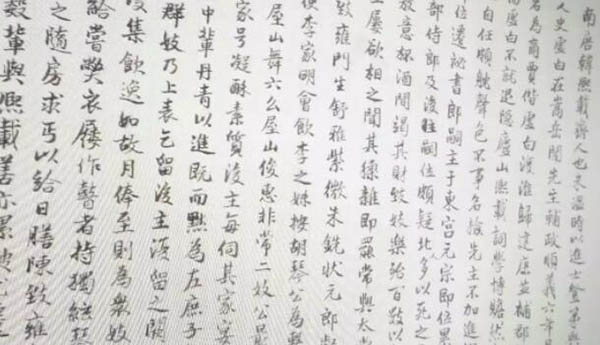 南唐韓熙載齊人也朱溫時以進士登第與
人史虛白在嵩岳聞先主輔政順義六年易
名為商賈偕虛白渡淮歸建康並補郡
虛白不就退隱廬山熙載詞學博贍然
自任頗耽聲色不事名撿先主不加進
位遷祕書郎嗣主于東宮元宗即位累
部侍郎及後主嗣位頗疑北人多以死之
放意杯酒間竭其財致妓樂殆百數以
主屢欲相之聞其猱雜即罷常與太常
致雍門生舒雅紫微朱銑狀元郎粲
使李家明會飲李之妹按胡琴公為擊
屋山舞六么屋山俊惠非常二妓公最
家号凝酥素質後主每伺其家宴
中輩丹青以進既而黜為左庶子
群妓乃上表乞留後主後留之闕
復集飲逸如故月俸至則為眾妓
給嘗弊衣屨作瞽者持獨絃琴
之隨房求丐以給日膳陳致雍
穀輩與熙載善亦累被